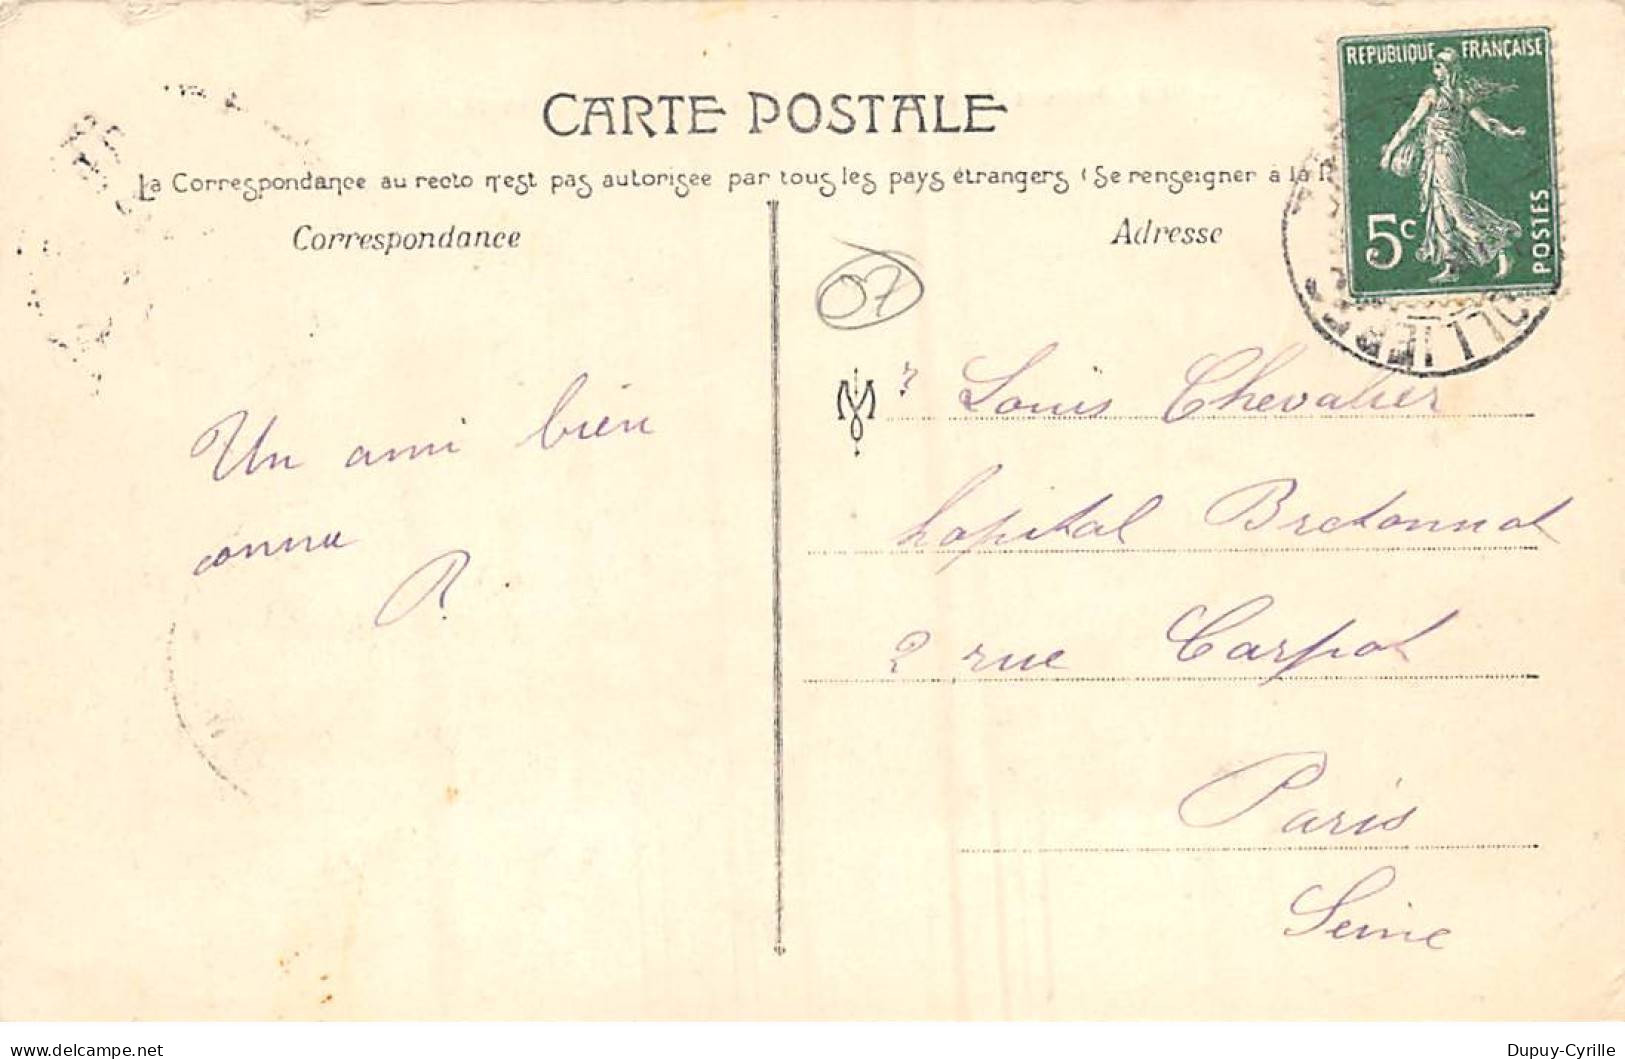 CARTE POSTALE
La Correspondance au recto n'est pas autorisée par tous les pays étrangers (Se renseigner à la
Correspondance
Adresse
REPUBLIQUE FRANÇAISE
5c
POSTES
07
Un ami bien
connu
R.
M r Louis Chevalier
hopital Bretonnot
2 rue Carpot
Paris
Seine
delcampe.net
Dupuy-Cyrille